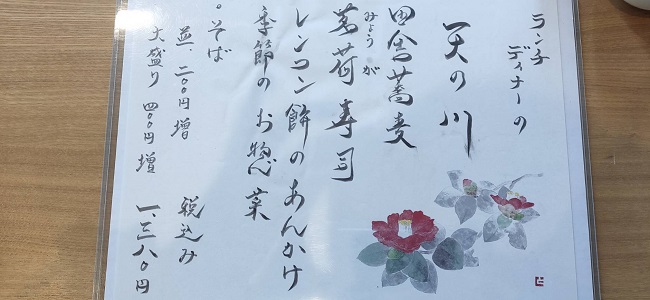 ランチ
ディナーの
天の川
田舎蕎麦
茗荷寿司
みょうが
レンコン餅のあんかけ
季節のお惣菜
。そば
並二〇〇円増
大盛り四〇〇円増
税込み
一、三八〇円